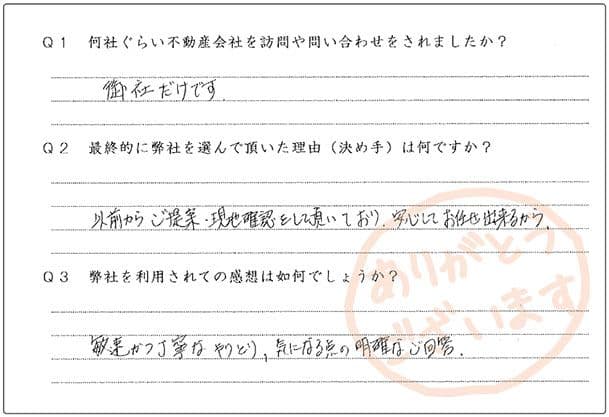 Q1 何社ぐらい不動産会社を訪問や問い合わせをされましたか？
御社だけです。
Q2 最終的に弊社を選んで頂いた理由（決め手）は何ですか？
以前からご提案・現地確認をして頂いており、安心してお任せ出来るから。
Q3 弊社を利用されての感想は如何でしょうか？
敏速かつ丁寧なやりとり、気になる点の明確なご回答。
ありがとう
ございます